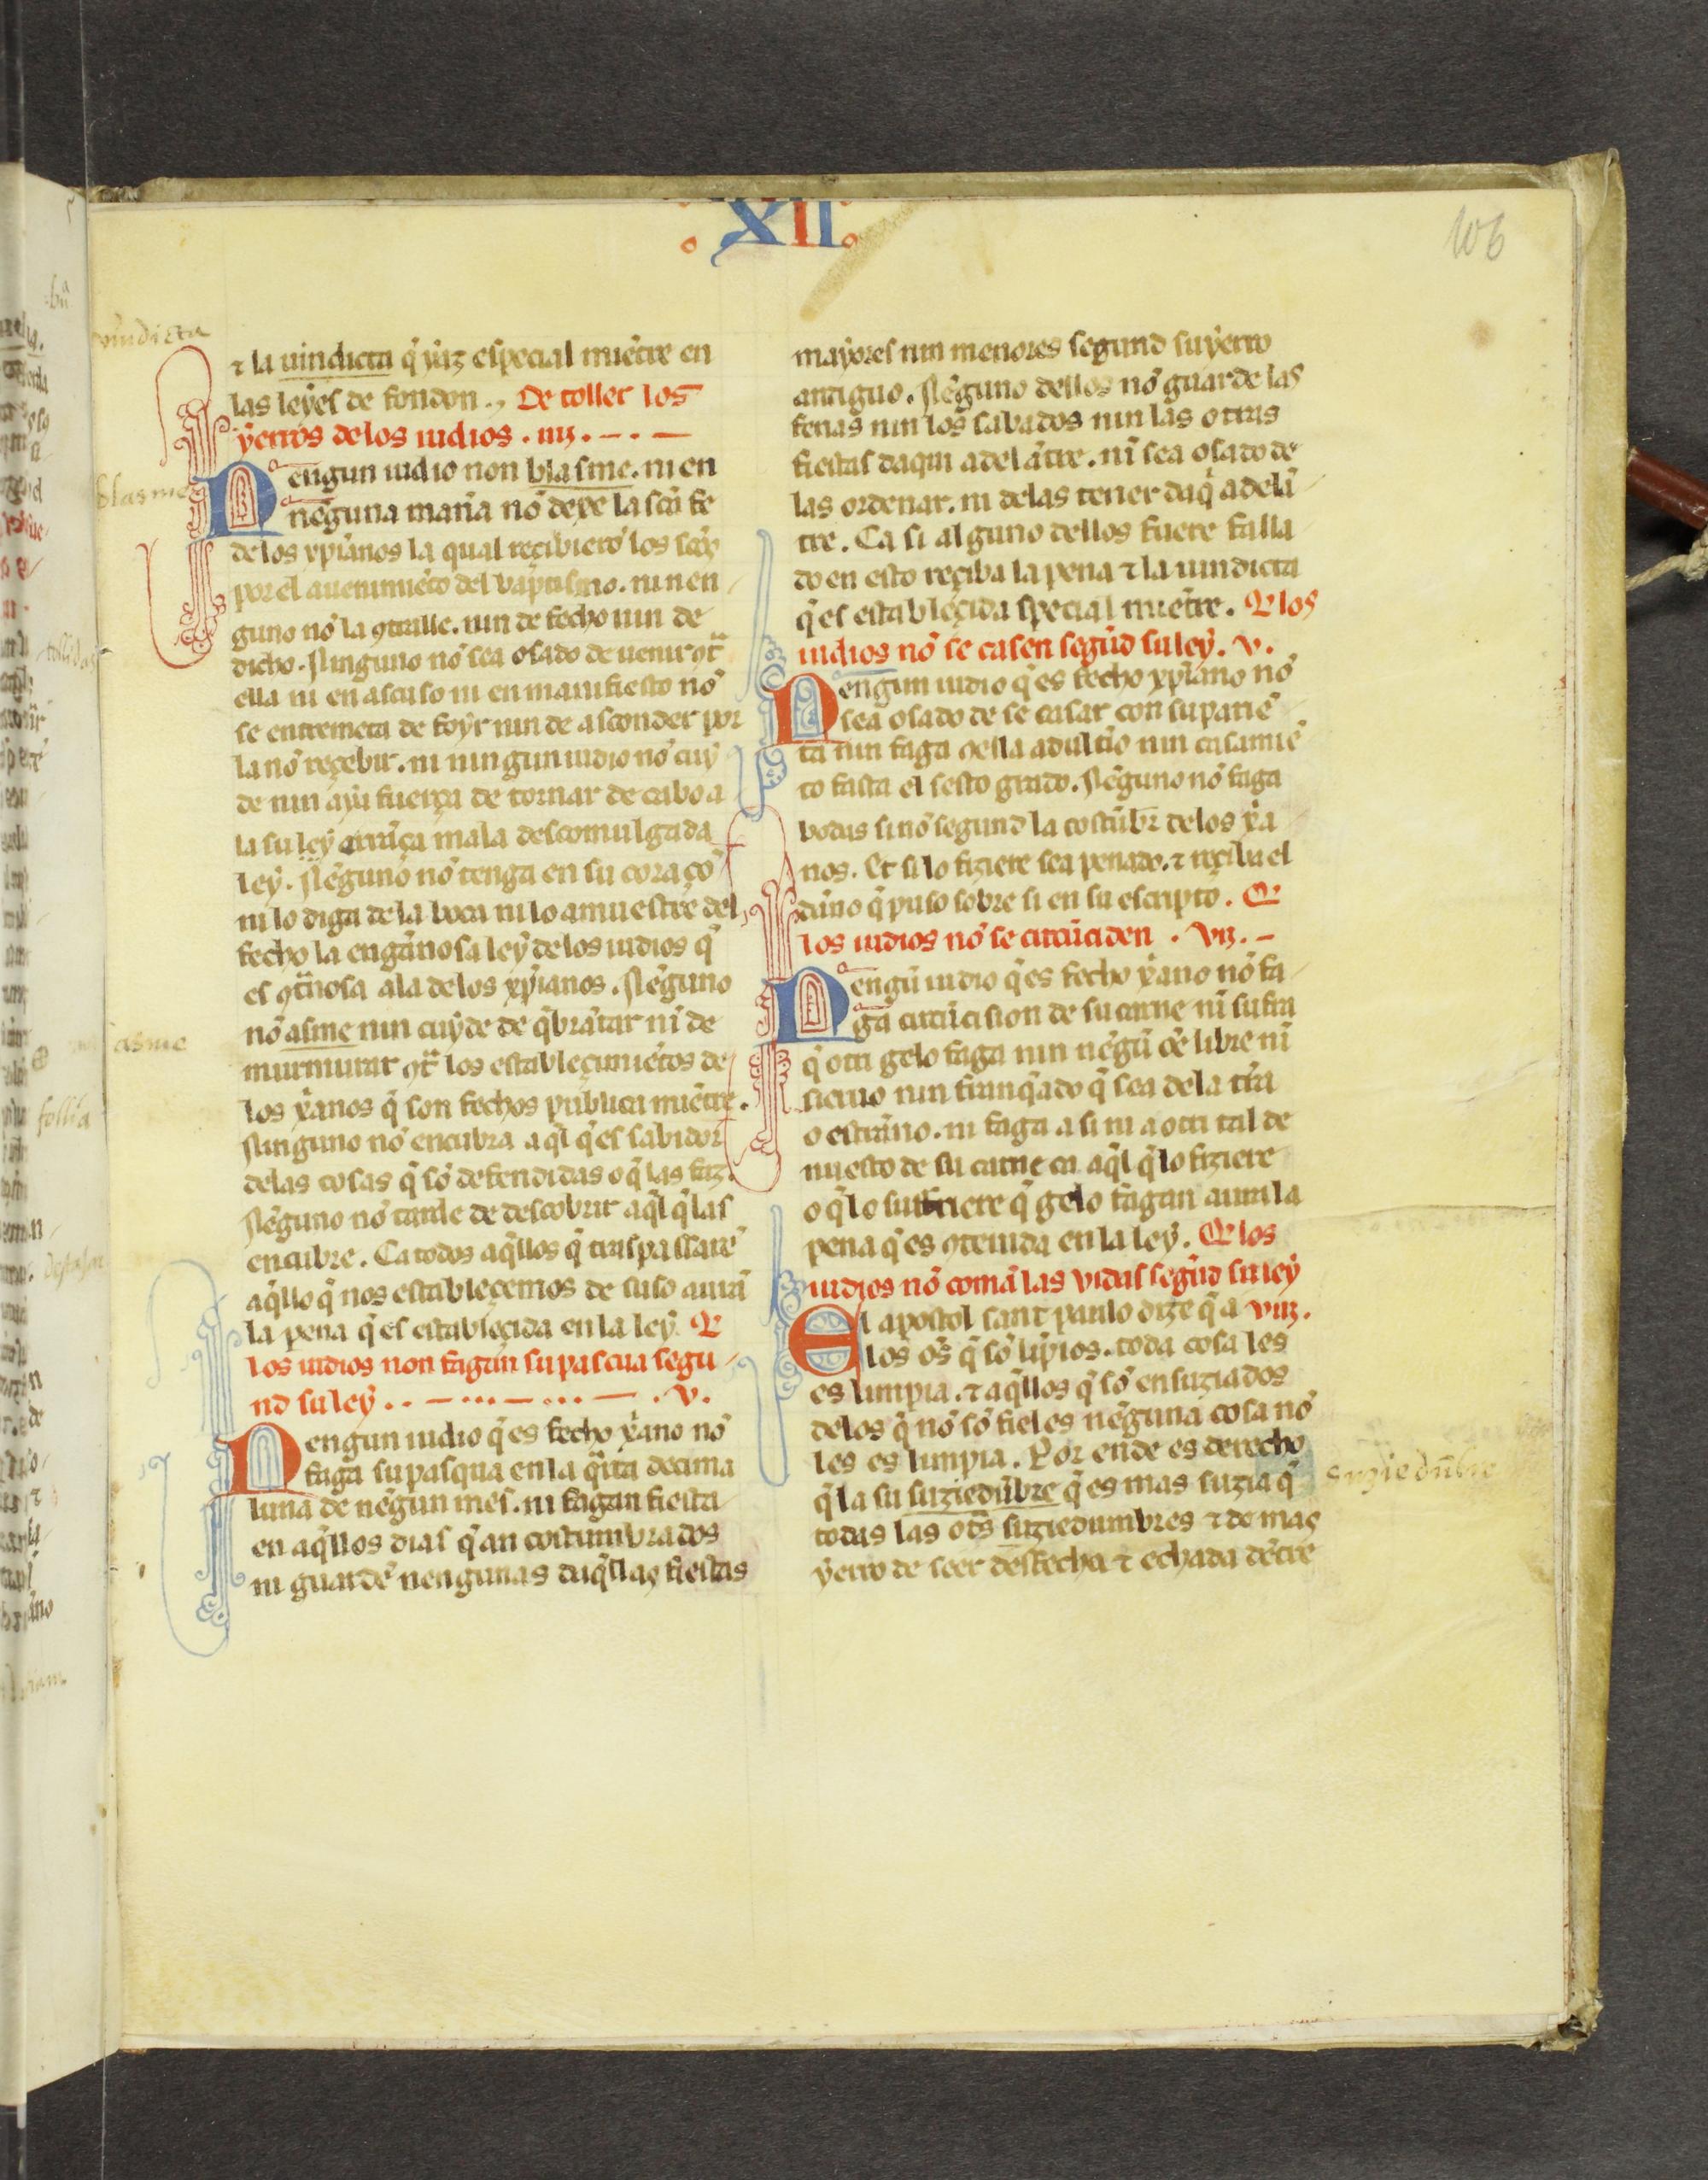 XII
106
uindicta
⁊ la uindicta q̃ yaz espeçial miẽtre en
las leyes de fondon. De toller los
yerros delos iudios. iiij.
blasme
Nengun iudio non blasme. ni en
neguna maña nõ dexe la scã fe
de los xpianos la qual reçibierõ los sos
por el auenimiẽto del baptismo. ni nen
guno nõ la 9tralle. nin de fecho nin de
dicho. Ninguno nõ sea osado de uenir 9t̃
ella ni en ascuso ni en manifiesto nõ
se entremeta de foyr nin de asconder por
la nõ reçebir. ni ningun iudio nõ cuy
de nin aya fuerça de tornar de cabo a
la su ley mala descomulgada
ley. Neguno nõ tenga en su coraçõ
ni lo diga de la boca ni lo amuestre del
fecho la engãnosa ley delos iudios q̃
es 9t̃riosa ala delos xp̃ianos. Neguno
asme
nõ asme nin cuyde de q̃brãtar nĩ de
murmurar 9t̃ los estableçimiẽtos de
los xãnos q̃ son fechos publica miẽtre.
Ninguno nõ encubra aq̃l q̃ es sabidor
delas cosas q̃ sõ defendidas o q̃ las faz.
Neguno nõ tarde de descobrir aq̃l q̃ las
encubre. Ca todos aq̃llos q̃ traspassarẽ
aq̃llo q̃ nos estableçemos de suso aurã
la pena q̃ es estableçida en la ley. Q̃
los iudios non fagan su pascua segu
nd su ley. v.
Nengun iudio q̃ es fecho xãno nõ
faga su pasqua en la q̃rta deçima
luna de negun mes. ni fagan fiesta
en aq̃llos dias q̃ an costumbrados
ni guardẽ nengunas daq̃llas fiestas
mayores nin menores segund su yerro
antiguo. Neguno dellos nõ guarde las
ferias nin los sabados nin las otras
fiestas daqui adelãtre. nĩ sea osado de
las ordenar. ni delas tener daq̃ adelã
tre. Ca si alguno dellos fuere falla
do en esto reçiba la pena ⁊ la uindicta
q̃ es estableçida speçial miẽtre. Q̃ los
iudios nõ se casen segũd su ley. v.
Nengun iudio q̃ es fecho xp̃iano nõ
sea osado de se casar con su pariẽ
ta nin faga cella adultio nin casamiẽ
to fasta el sesto grado. Neguno nõ faga
bodas si nõ segund la costũbr̃ delos xã
nos. Et si lo fiziere sea penado. ⁊ reçiba el
dãno q̃ puso sobre si en su escripto. Q̃
los iudios nõ se circũciden. vij.
Nengũ iudio q̃ es fecho xãno nõ fa
ga circũcision de su carne nĩ sufra
q̃ otri gelo faga nin negũ õe libre nĩ
sieruo nin franq̃ado q̃ sea dela tr̃a
o estrãno. ni faga a si ni a otri tal de
nuesto de su carne ca aq̃l q̃ lo fiziere
o q̃ lo sufriere q̃ gelo fagan aura la
pena q̃ es 9tenida en la ley. Q̃ los
iudios nõ comã las vidas segũd su ley
viij.
El apostol sant paulo dize q̃ a
los õs q̃ sõ lĩpios. toda cosa les
es limpia. ⁊ aq̃llos q̃ sõ ensuziados
delos q̃ nõ sõ fieles neguna cosa nõ
les es limpia. Por ende es derecho
q̃ la su suziedũbre q̃ es mas suzia q̃
suziedũbre
todas las ot̃s suziedumbres ⁊ de mas
yerro de seer desfecha ⁊ echada dẽtre